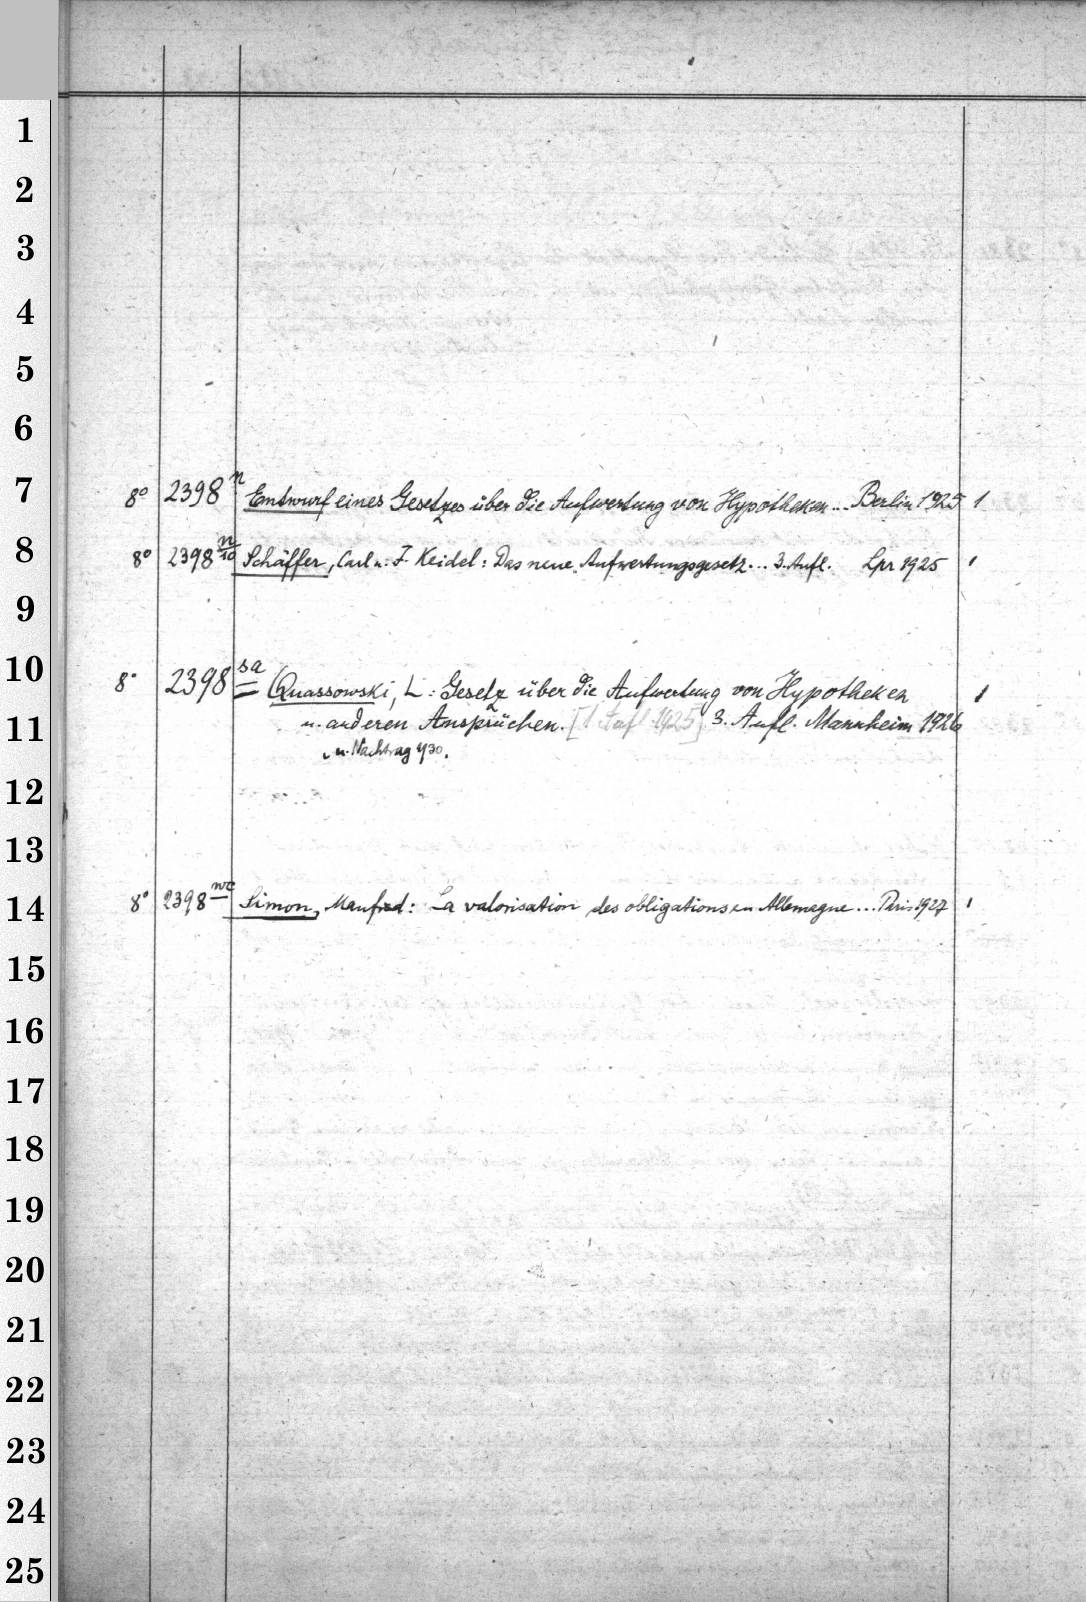 1
2
3
4
5
6
7 8° 2398 n Entwurf eines Gesetzes über die Aufwertung von Hypotheken... Berlin 1925 1
8 8° 2398 n/10 Schäffer, Carl u. F. Keidel: Das neue Aufwertungsgesetz... 3. Aufl. Lpz 1925 1
9
10 8° 2398 sa Quassowski, L: Gesetz über die Aufwertung von Hypotheken 1
11 u. anderen Ansprüchen. [1 Aufl 1925] 3. Aufl. Mannheim 1926
u. Nachtrag 930.
12
13
14 8° 2398 Simon, Manfred: La valorisation des obligations en Allemagne... Paris 1927 1
15
16
17
18
19
20
21
22
23
24
25